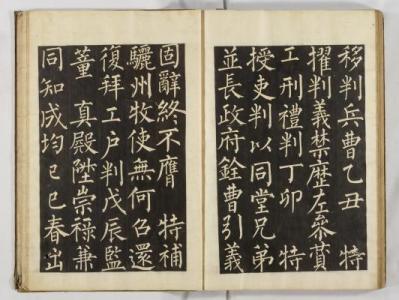 移判兵曹乙丑 特
擢判義禁歴左叅賛
工刑禮判丁卯 特
授吏判以同堂兄弟
並長政府銓曹引義
固辭終不膺 特補
驪州牧使無何召還
復拜工戶判戊辰監
董 真殿陞崇祿兼
同知成均己巳春出